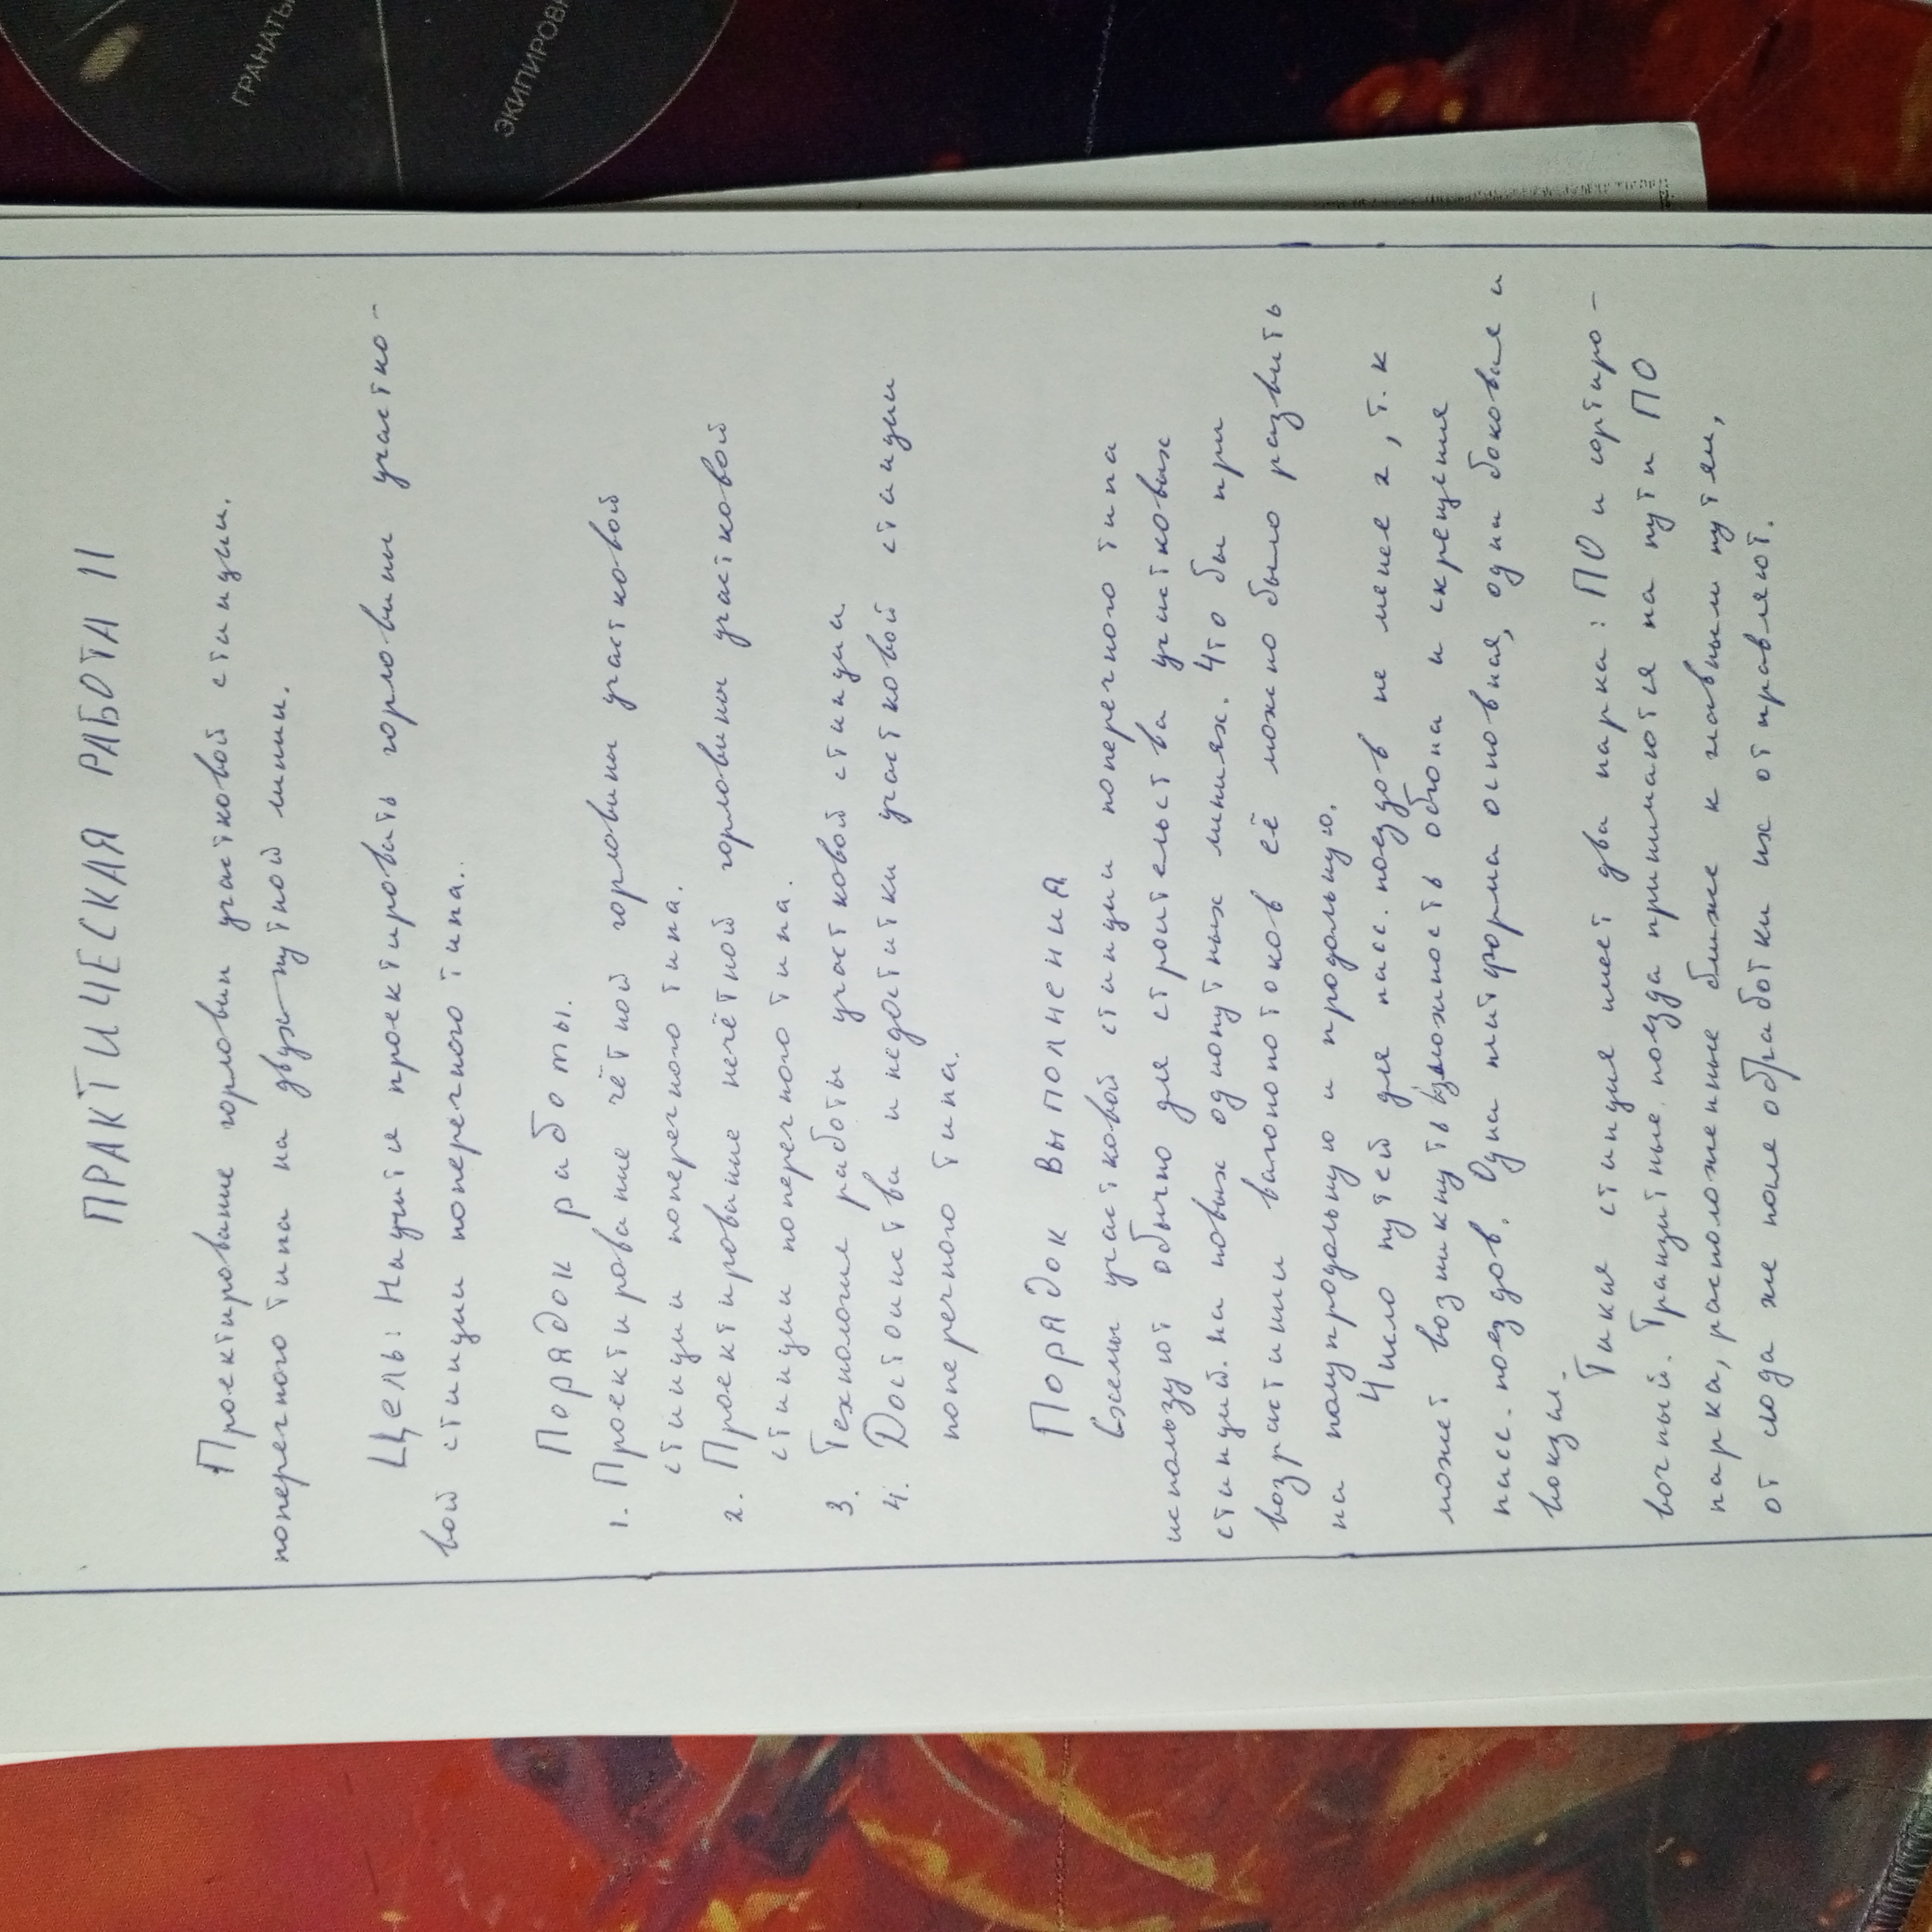 ГРАНАТЫ
ЭКИПИРОВ
ПРАКТИЧЕСКАЯ РАБОТА 11
Проектирование горловин участковой станции.
поперечного типа на двухпутной линии.
Цель: Научится проектировать горловины участко-
вой станции поперечного типа.
Порядок работы.
1. Проектирование чётной горловины участковой
станции поперечного типа.
2. Проектирование нечётной горловины участковой
станции поперечного типа.
3. Технология работы участковой станции
4. Достоинства и недостатки участковой станции
поперечного типа.
Порядок выполнения
Схемы участковой станции поперечного типа
используют обычно для строительства участковых
станций.на новых однопутных линиях. Что бы при
возрастании вагонопотоков её можно было развить
на полупродольную и продольную.
Число путей для пасс.поездов не менее 2, т.к
может возникнуть возможность обгона и скрещения
пасс.поездов. Одна платформа основная, одна боковая и
вокзал.
Такая станция имеет два парка: ПО и сортиро-
вочный. Транзитные поезда принимаются на пути ПО
парка, расположенные ближе к главным путям,
от сюда же после обработки их отправляют.